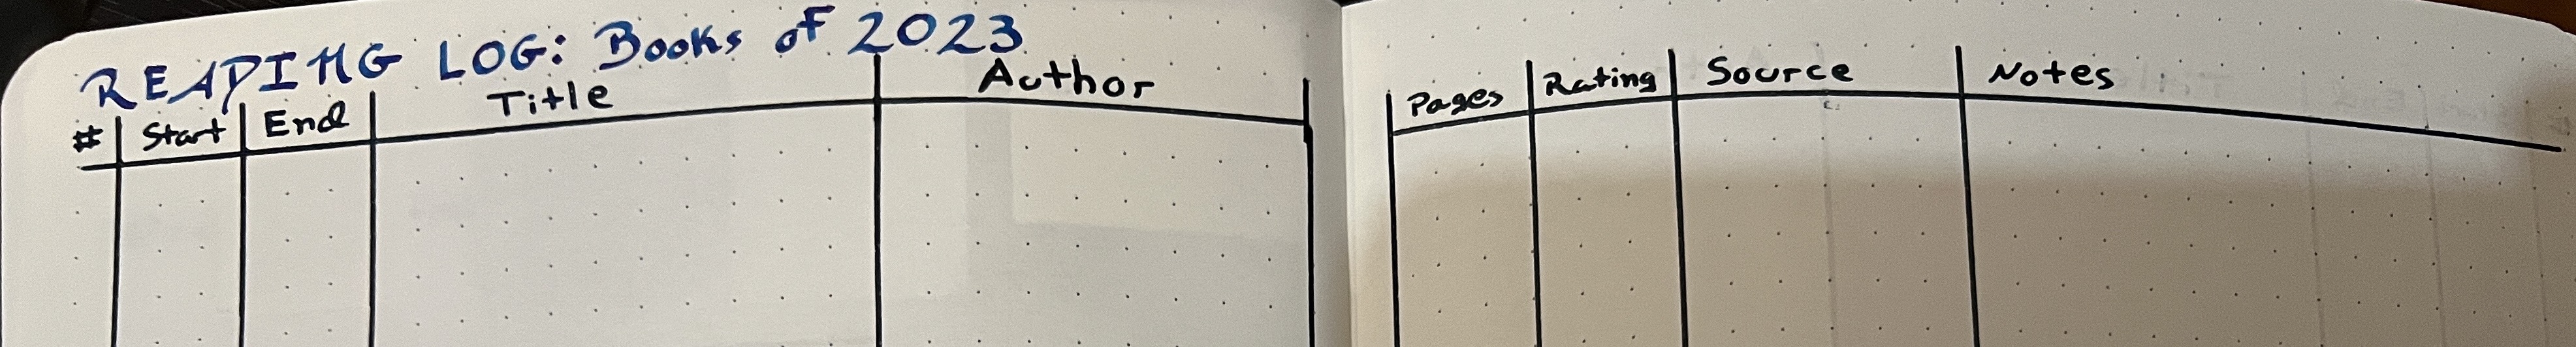 READING LOG: Books of 2023
# Start End Title Author Pages Rating Source Notes